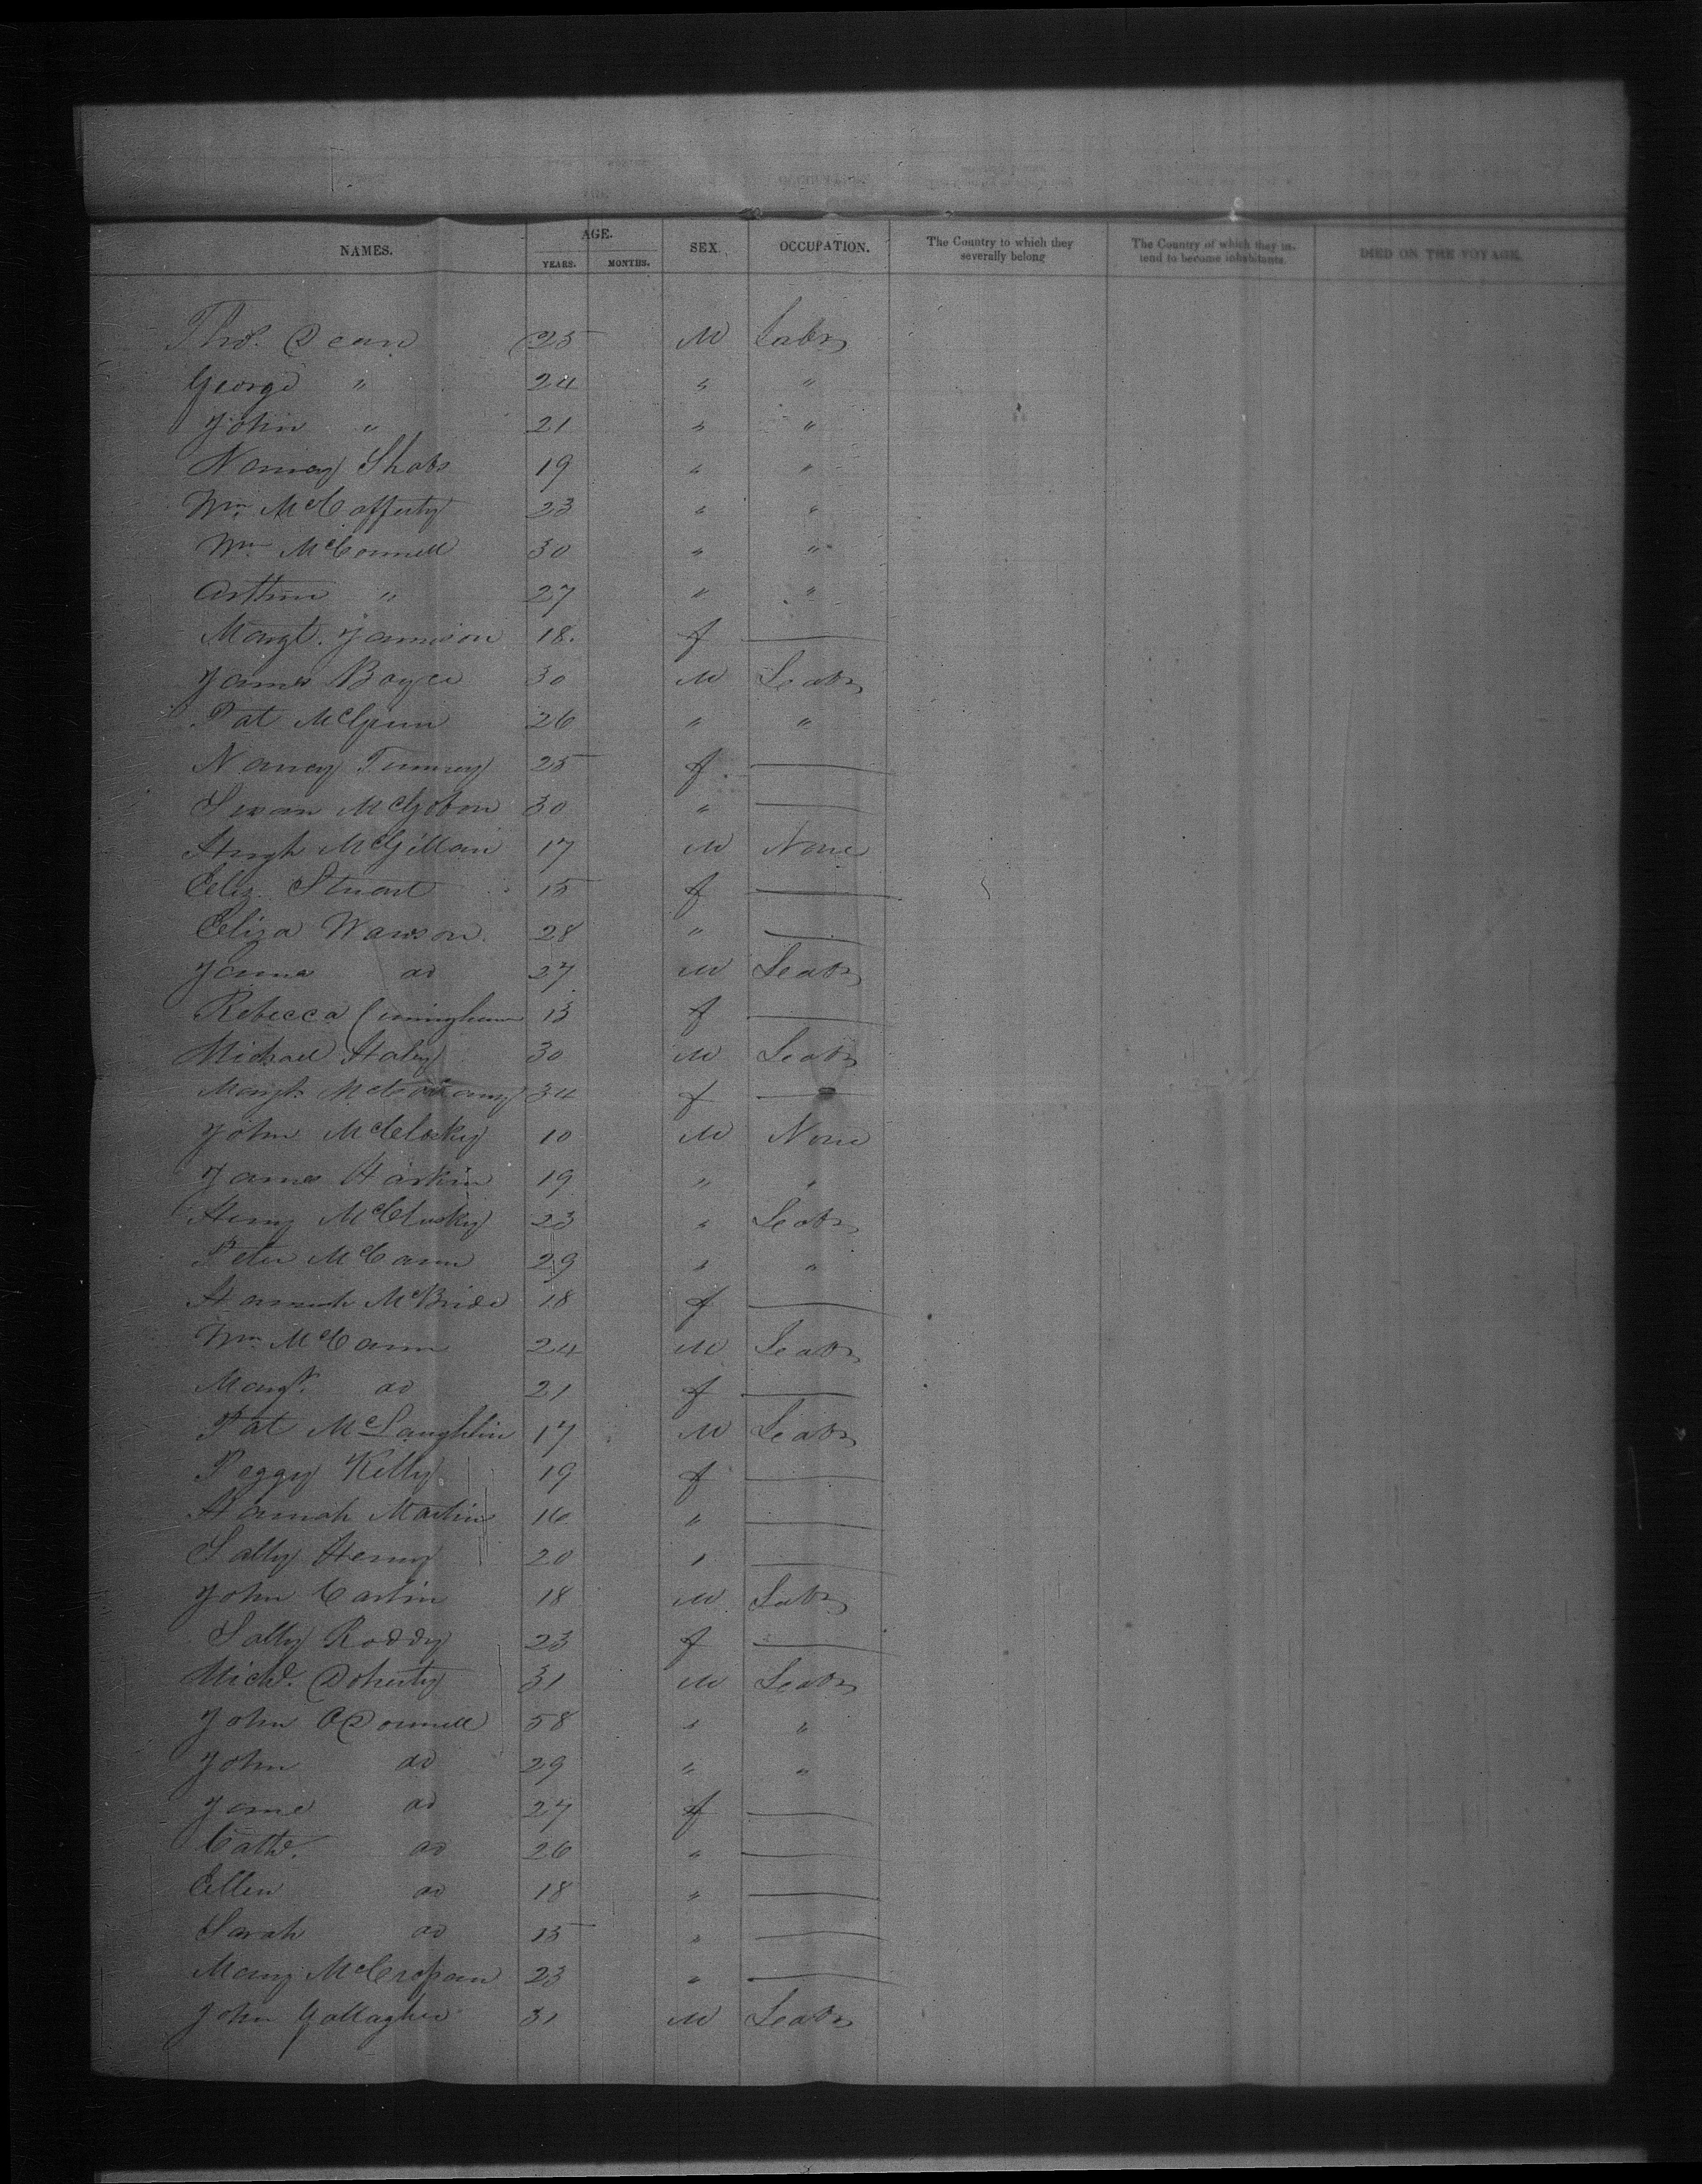 NAMES. AGE. YEARS. MONTHS. SEX. OCCUPATION. The Country to which they severally belong The Country of which they intend to become inhabitants. DIED ON THE VOYAGE.
Thos. Dean 25 M Labr
George " 24 " "
John " 21 " "
Nancy 19 " "
Wm McCafferty 23 " "
Wm McConnell 30 " "
Arthur " 27 " "
Margt. Jamison 18 f
James Boyce 30 M Labr
Pat McGinn 26 " "
Nancy 25 f
Susan 30 "
Hugh McGillan 17 M None
Eliz. Stuart 15 f
Eliza Wawson 28 "
James do 27 M Labr
Rebecca Cuningham 13 f
Michael Haley 30 M Labr
Margt. 34 f
John McClosky 10 M None
James Harkin 19 " "
Henry McClusky 23 " Labr
Peter McCann 29 " "
Hannah McBride 18 f
Wm McCann 24 M Labr
Margt. do 21 f
Pat McLaughlin 17 M Labr
Peggy Kelly 19 f
Hannah Martin 16 "
Sally Henry 20 "
John Carlin 18 M Labr
Sally Roddy 23 f
Michl. Doherty 31 M Labr
John ODonnell 58 " "
John do 29 " "
Jane do 27 f
Cathe. do 26 "
Ellen do 18 "
Sarah do 15 "
Mary McCrossan 23 "
John Gallagher 31 M Labr